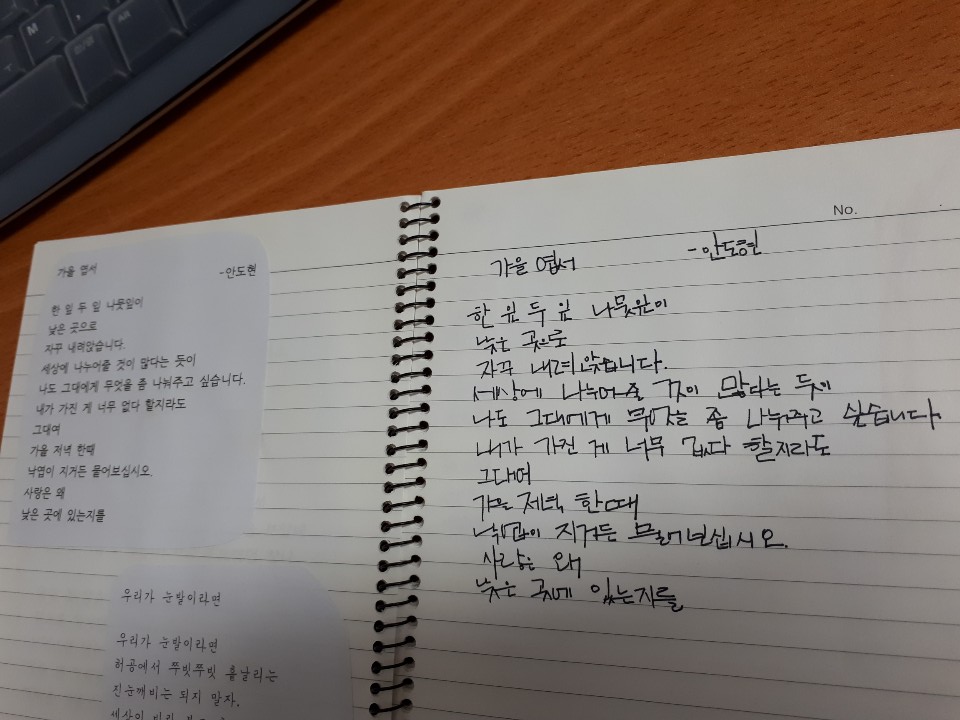 가을 엽서 -안도현
한 잎 두 잎 나뭇잎이
낮은 곳으로
자꾸 내려앉습니다.
세상에 나누어줄 것이 많다는 듯이
나도 그대에게 무엇을 좀 나눠주고 싶습니다.
내가 가진 게 너무 없다 할지라도
그대여
가을 저녁 한때
낙엽이 지거든 물어보십시오.
사랑은 왜
낮은 곳에 있는지를
우리가 눈발이라면
우리가 눈발이라면
허공에서 쭈빗쭈빗 흩날리는
진눈깨비는 되지 말자.
세상이
No.
가을 엽서 -안도현
한 잎 두 잎 나뭇잎이
낮은 곳으로
자꾸 내려앉습니다.
세상에 나누어줄 것이 많다는 듯이
나도 그대에게 무엇을 좀 나눠주고 싶습니다.
내가 가진 게 너무 없다 할지라도
그대여
가을 저녁 한때
낙엽이 지거든 물어보십시오.
사랑은 왜
낮은 곳에 있는지를